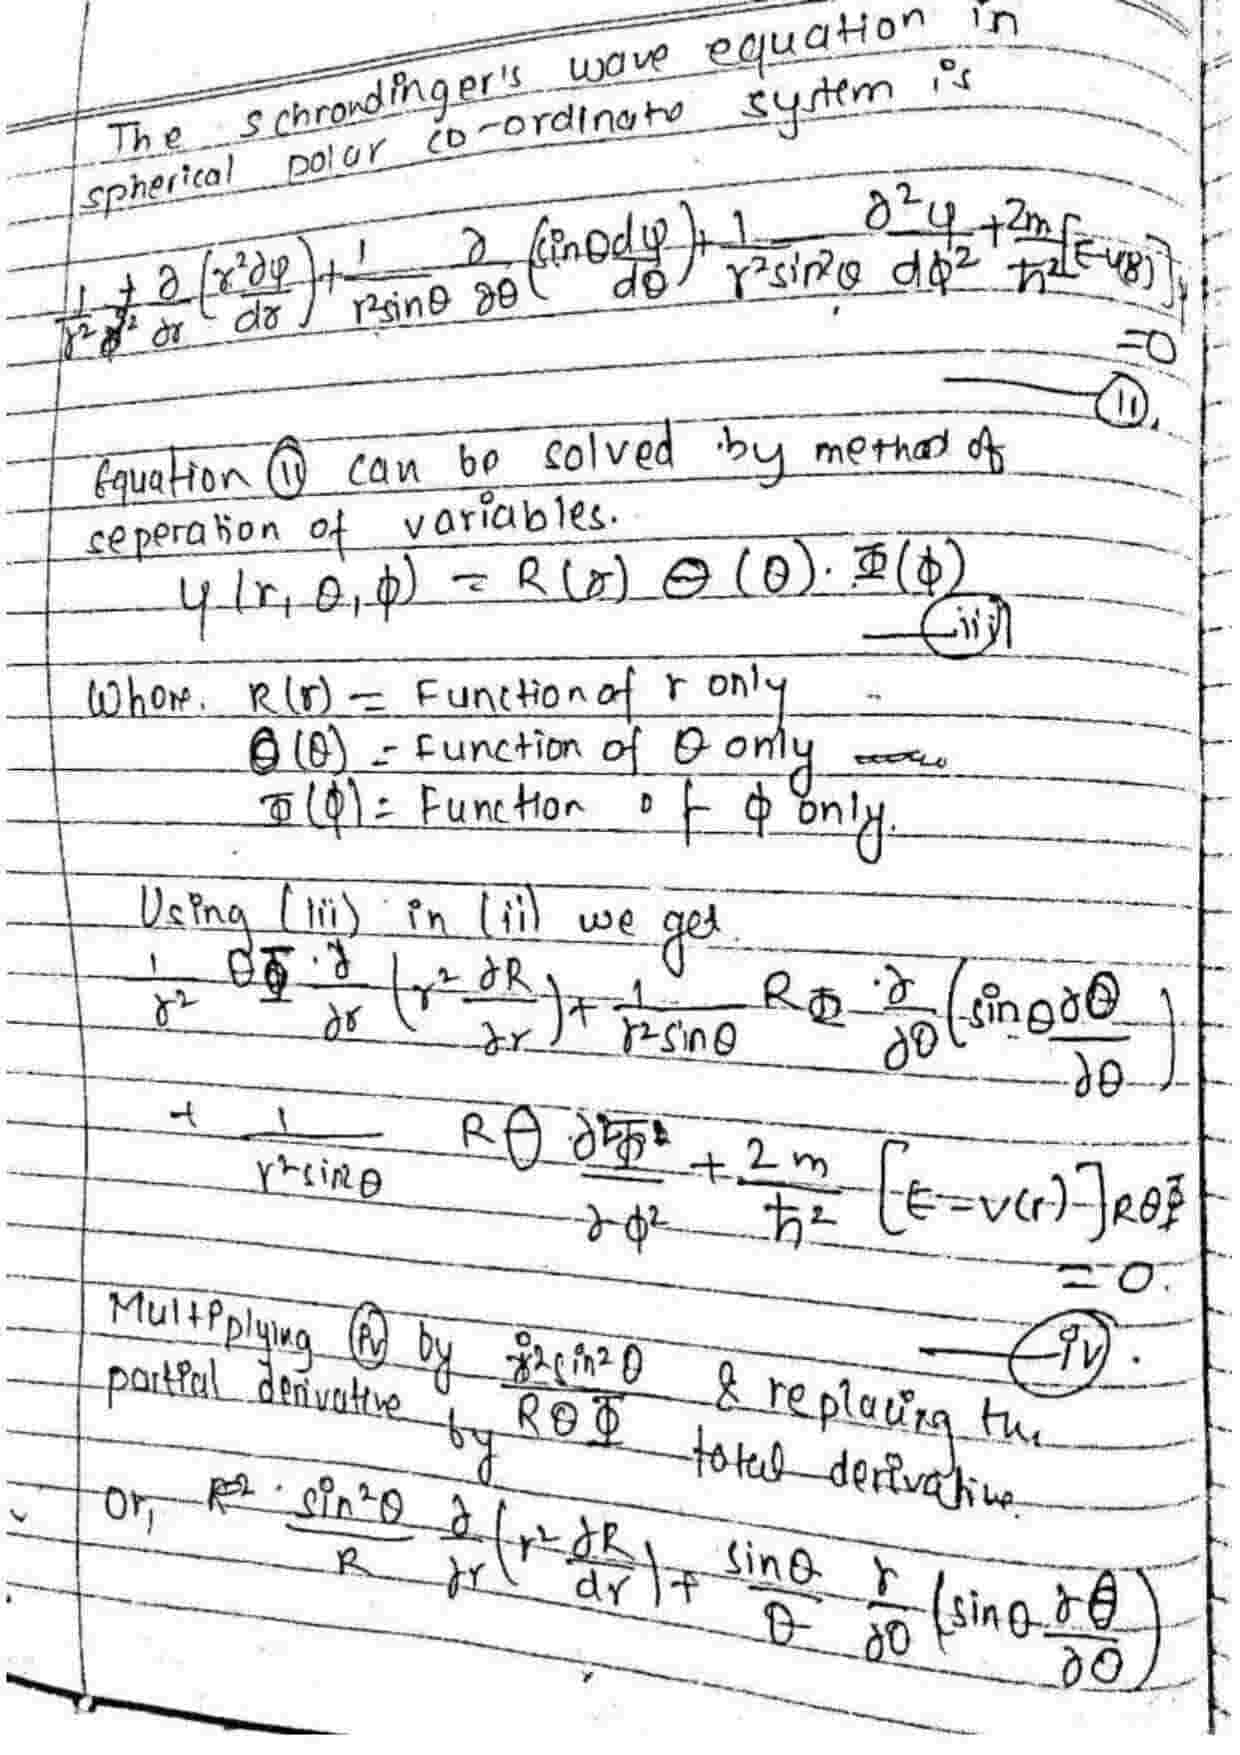 The schrondinger's wave equation in
spherical polar co-ordinate system is
1/r² ∂/∂r (r²∂ψ/dr) + 1/r²sinθ ∂/∂θ (sinθ dψ/dθ) + 1/r²sin²θ ∂²ψ/dϕ² + 2m/ħ² [E-V(r)]ψ
=0
— (ii).
Equation (ii) can be solved by method of
seperation of variables.
ψ(r, θ, ϕ) = R(r) Θ(θ). Φ(ϕ)
— (iii)
Where. R(r) = Function of r only
Θ(θ) = Function of θ only
Φ(ϕ) = Function of ϕ only.
Using (iii) in (ii) we get
1/r² ΘΦ . ∂/∂r (r² ∂R/∂r) + 1/r²sinθ RΦ . ∂/∂θ (sinθ ∂Θ/∂θ)
+ 1/r²sin²θ RΘ . ∂²Φ/∂ϕ² + 2m/ħ² [E-V(r)] RΘΦ
= 0.
— (iv).
Multiplying (iv) by r²sin²θ/RΘΦ & replacing the
partial derivative by total derivative.
Or, sin²θ/R ∂/∂r (r² ∂R/dr) + sinθ/Θ ∂/∂θ (sinθ ∂Θ/∂θ)